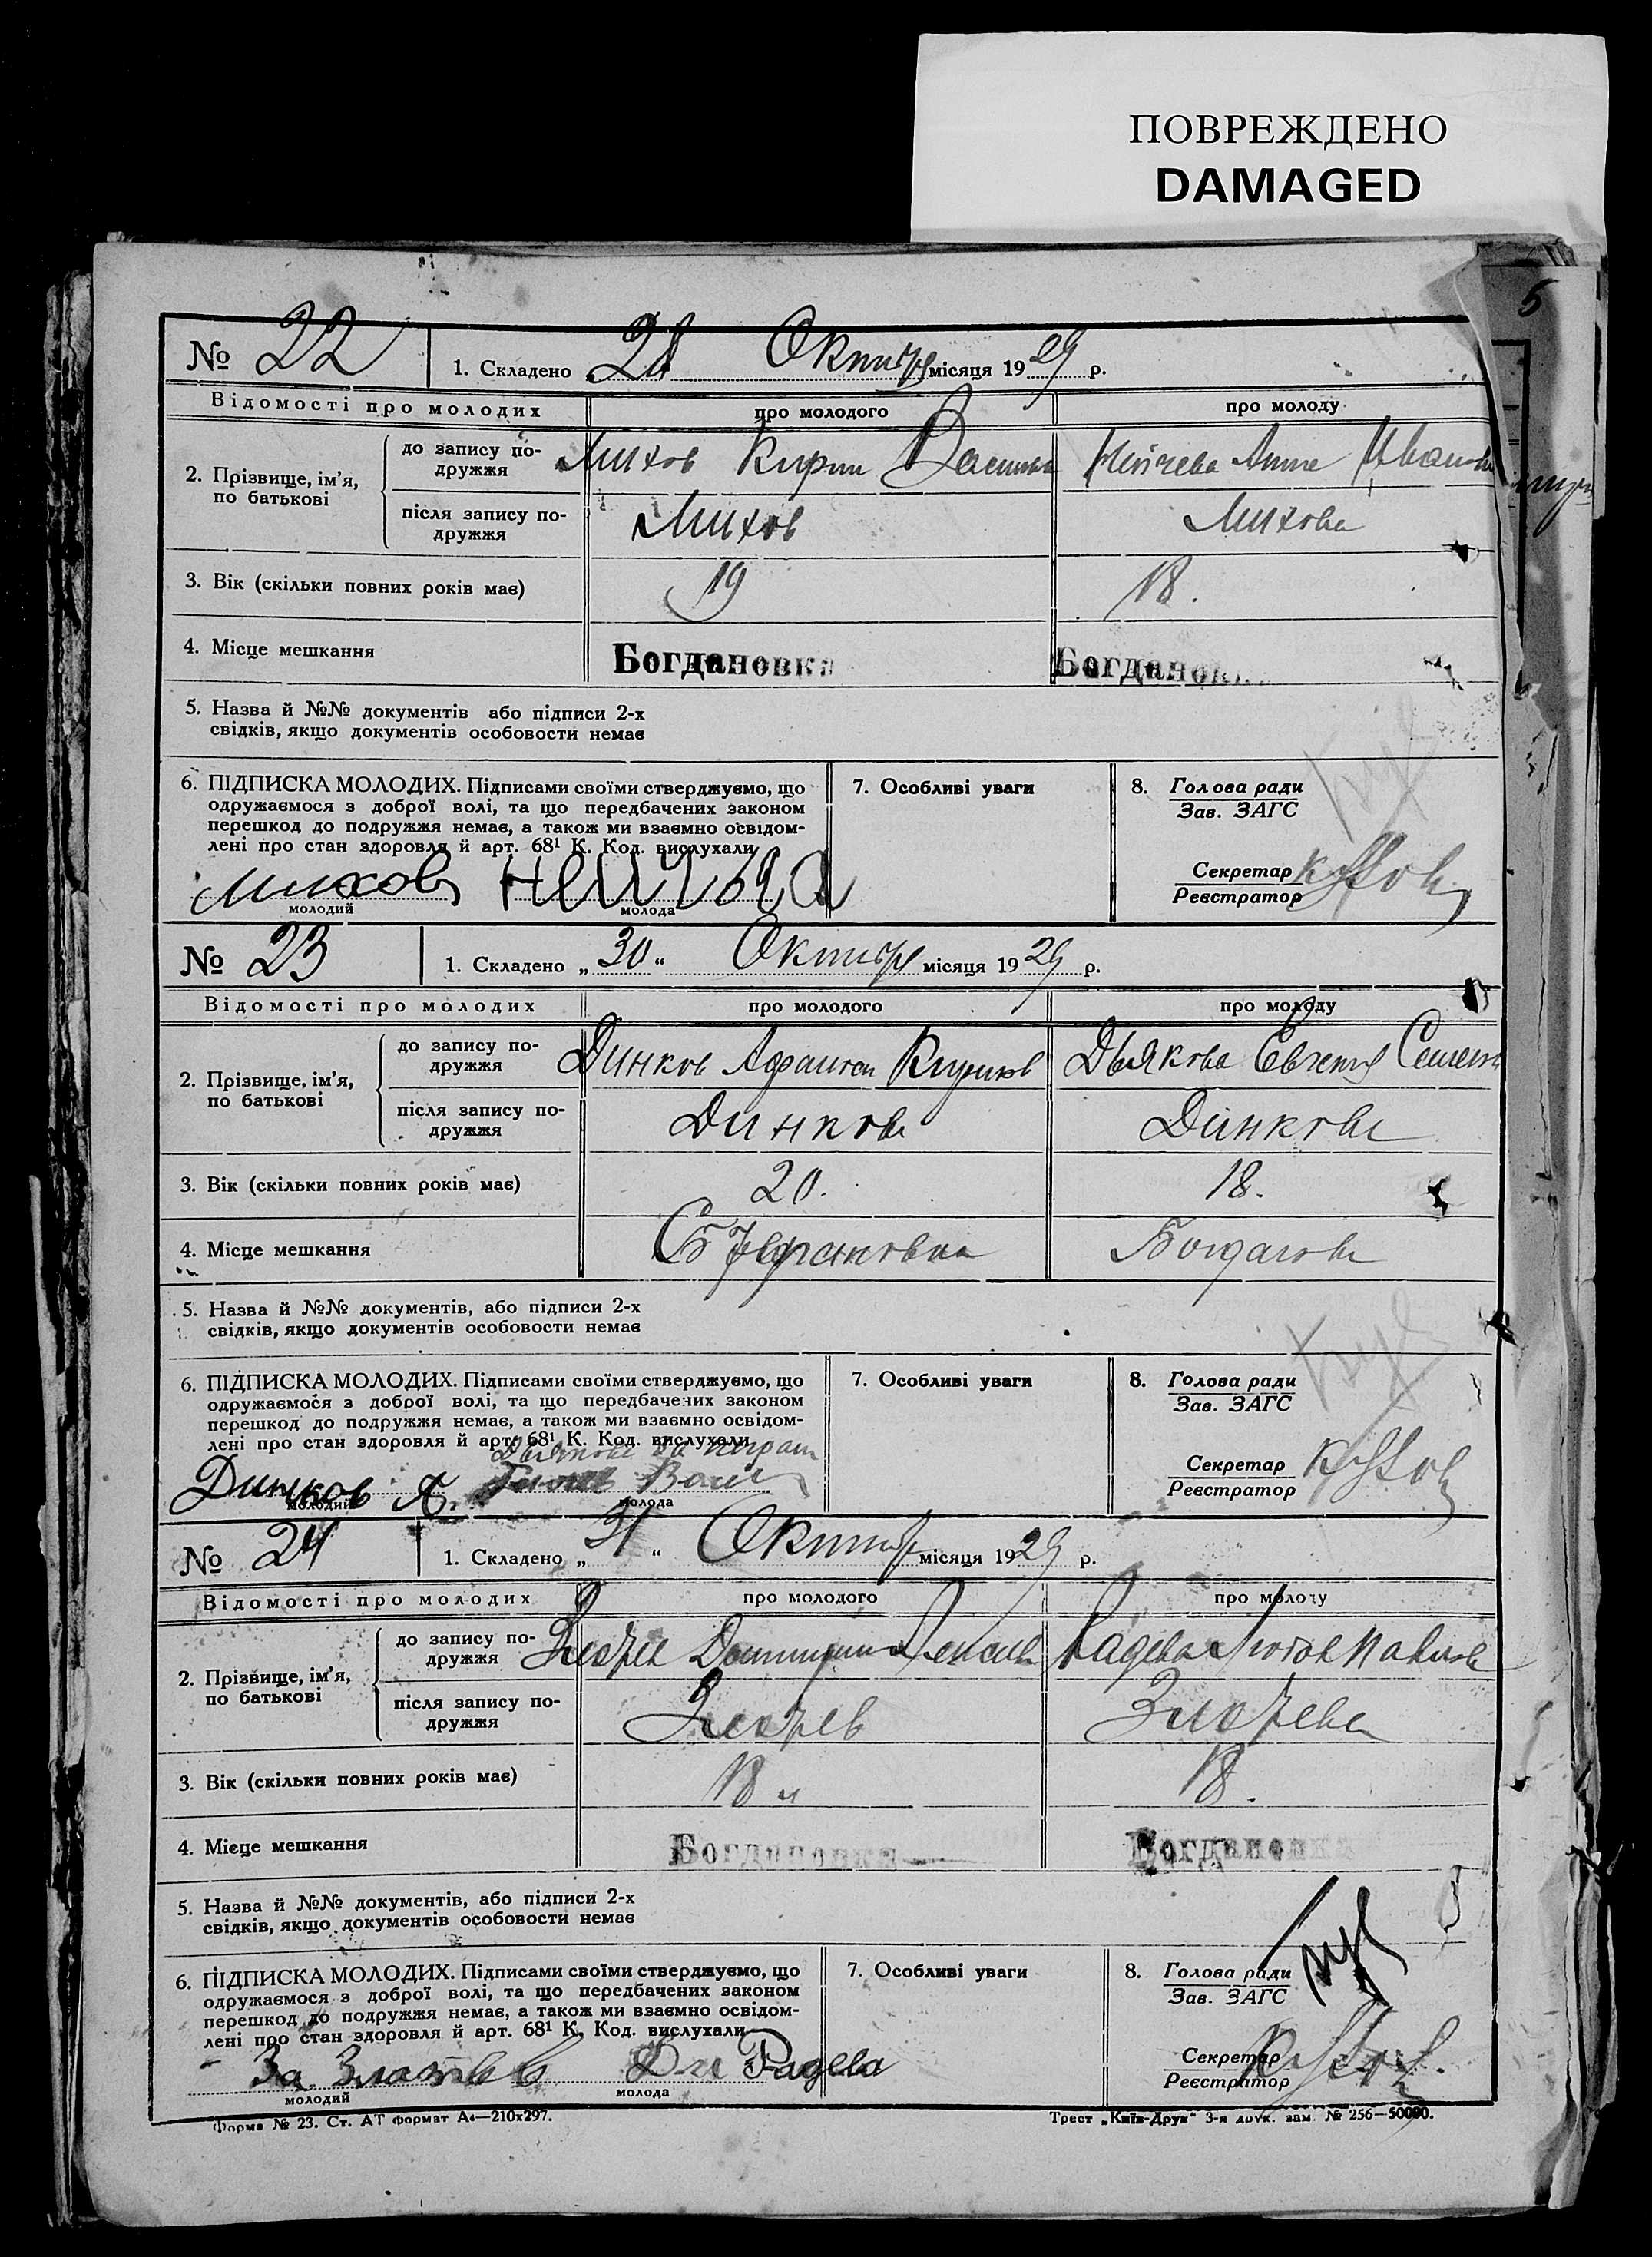 ПОВРЕЖДЕНО
DAMAGED
5
№ 22
1. Складено „28 Октября місяця 1929 р.
Відомості про молодих
про молодого
про молоду
2. Прізвище, ім’я, по батькові
до запису по-
дружжя
Михов Кирил
Анна Иванов
після запису по-
дружжя
Михов
Михова
3. Вік (скільки повних років має)
19
18.
4. Місце мешкання
Богдановка
Богдановк
5. Назва й №№ документів або підписи 2-х
свідків, якщо документів особовости немає
6. ПІДПИСКА МОЛОДИХ. Підписами своїми стверджуємо, що
одружаємося з доброї волі, та що передбачених законом
перешкод до подружжя немає, а також ми взаємно освідом-
лені про стан здоровля й арт. 68¹ К. Код. вислухали
Михов
молодий
молода
7. Особливі уваги
8. Голова ради
Зав. ЗАГС
Секретар
Реєстратор
№ 23
1. Складено „30“ Октября місяця 1929 р.
Відомості про молодих
про молодого
про молоду
2. Прізвище, ім’я,
по батькові
до запису по-
дружжя
Динков
Дьякова Евгения Семен
після запису по-
дружжя
Динков
Динкова
3. Вік (скільки повних років має)
20.
18.
4. Місце мешкання
5. Назва й №№ документів, або підписи 2-х
свідків, якщо документів особовости немає
6. ПІДПИСКА МОЛОДИХ. Підписами своїми стверджуємо, що
одружаємося з доброї волі, та що передбачених законом
перешкод до подружжя немає, а також ми взаємно освідом-
лені про стан здоровля й арт. 68¹ К. Код. вислухали
Динков А.
молодий
молода
7. Особливі уваги
8. Голова ради
Зав. ЗАГС
Секретар
Реєстратор
№ 24
1. Складено „31“ Октября місяця 1929 р.
Відомості про молодих
про молодого
про молоду
2. Прізвище, ім’я,
по батькові
до запису по-
дружжя
Радева
після запису по-
дружжя
3. Вік (скільки повних років має)
18
18.
4. Місце мешкання
Богдановка
Богдановка
5. Назва й №№ документів, або підписи 2-х
свідків, якщо документів особовости немає
6. ПІДПИСКА МОЛОДИХ. Підписами своїми стверджуємо, що
одружаємося з доброї волі, та що передбачених законом
перешкод до подружжя немає, а також ми взаємно освідом-
лені про стан здоровля й арт. 68¹ К. Код. вислухали
За Радева
молодий
молода
7. Особливі уваги
8. Голова ради
Зав. ЗАГС
Секретар
Реєстратор
Форма № 23. Ст. АТ формат А4—210х297.
Трест „Київ-Друк“ 3-я друк. зам. № 256—50000.